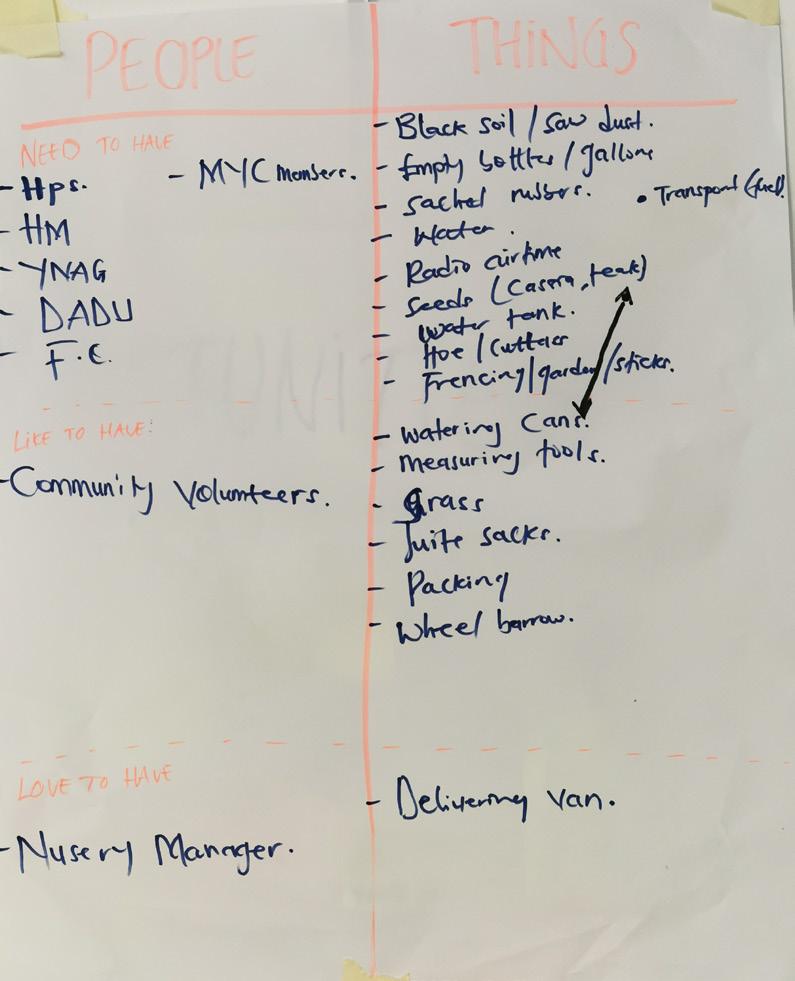 PEOPLE
THINGS
NEED TO HAVE
- Hps.
- MYC members.
- HM
- YNAG
- DADU
- F.C.
- Black soil / saw dust.
- Empty bottles / gallons
- Sachet rubbers.
• Transport (fuel)
- Water.
- Radio airtime
- Seeds (Casera, teak)
- Water tank.
- Hoe / Cutlass
- Frencing / garden / sticks.
LIKE TO HAVE:
- Community Volunteers.
- Watering Cans.
- Measuring tools.
- Grass
- Juite sacks.
- Packing
- Wheel barrow.
LOVE TO HAVE
- Nusery Manager.
- Delivering Van.